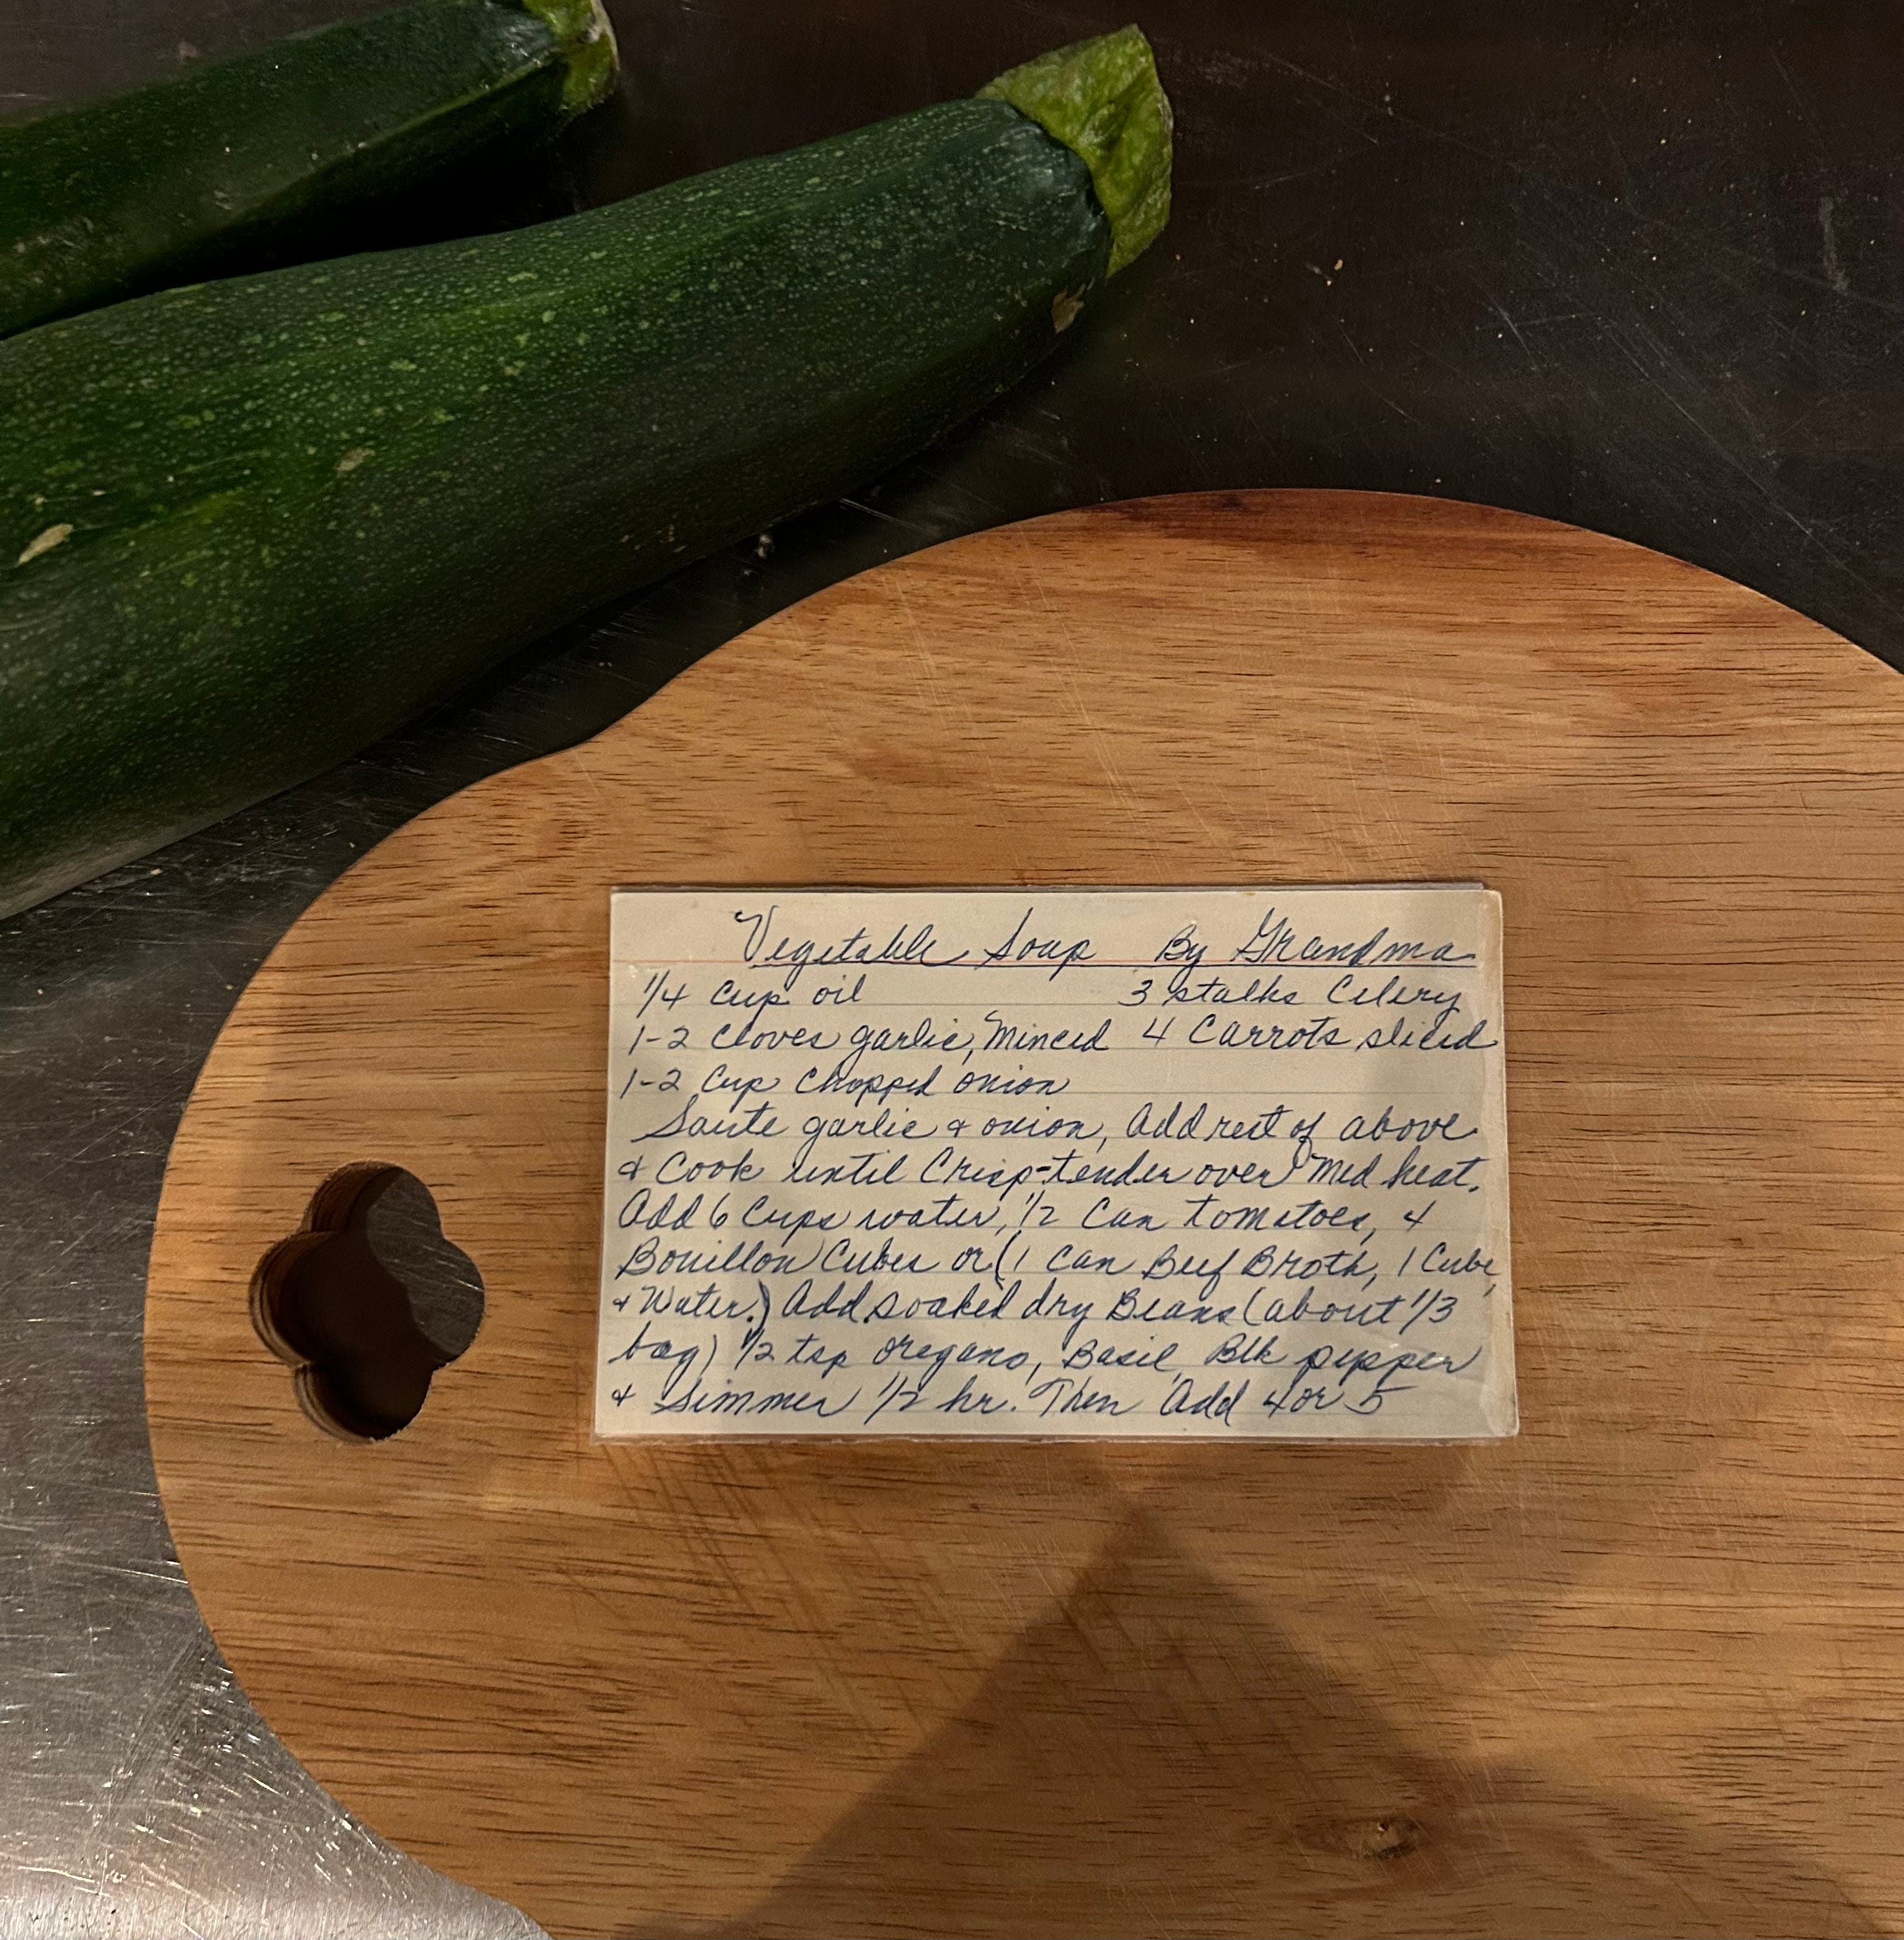 Vegetable Soup By Grandma
1/4 Cup oil 3 stalks Celery
1-2 Cloves garlic, Minced 4 Carrots sliced
1-2 Cup Chopped onion
Saute garlic & onion, Add rest of above
& Cook until Crisp-tender over Med heat.
Add 6 Cups water, 1/2 Can tomatoes, 4
Bouillon Cubes or (1 Can Beef Broth, 1 Cube,
& Water.) Add soaked dry Beans (about 1/3
bag) 1/2 tsp oregano, Basil, Blk pepper
& Simmer 1/2 hr. Then Add 4 or 5